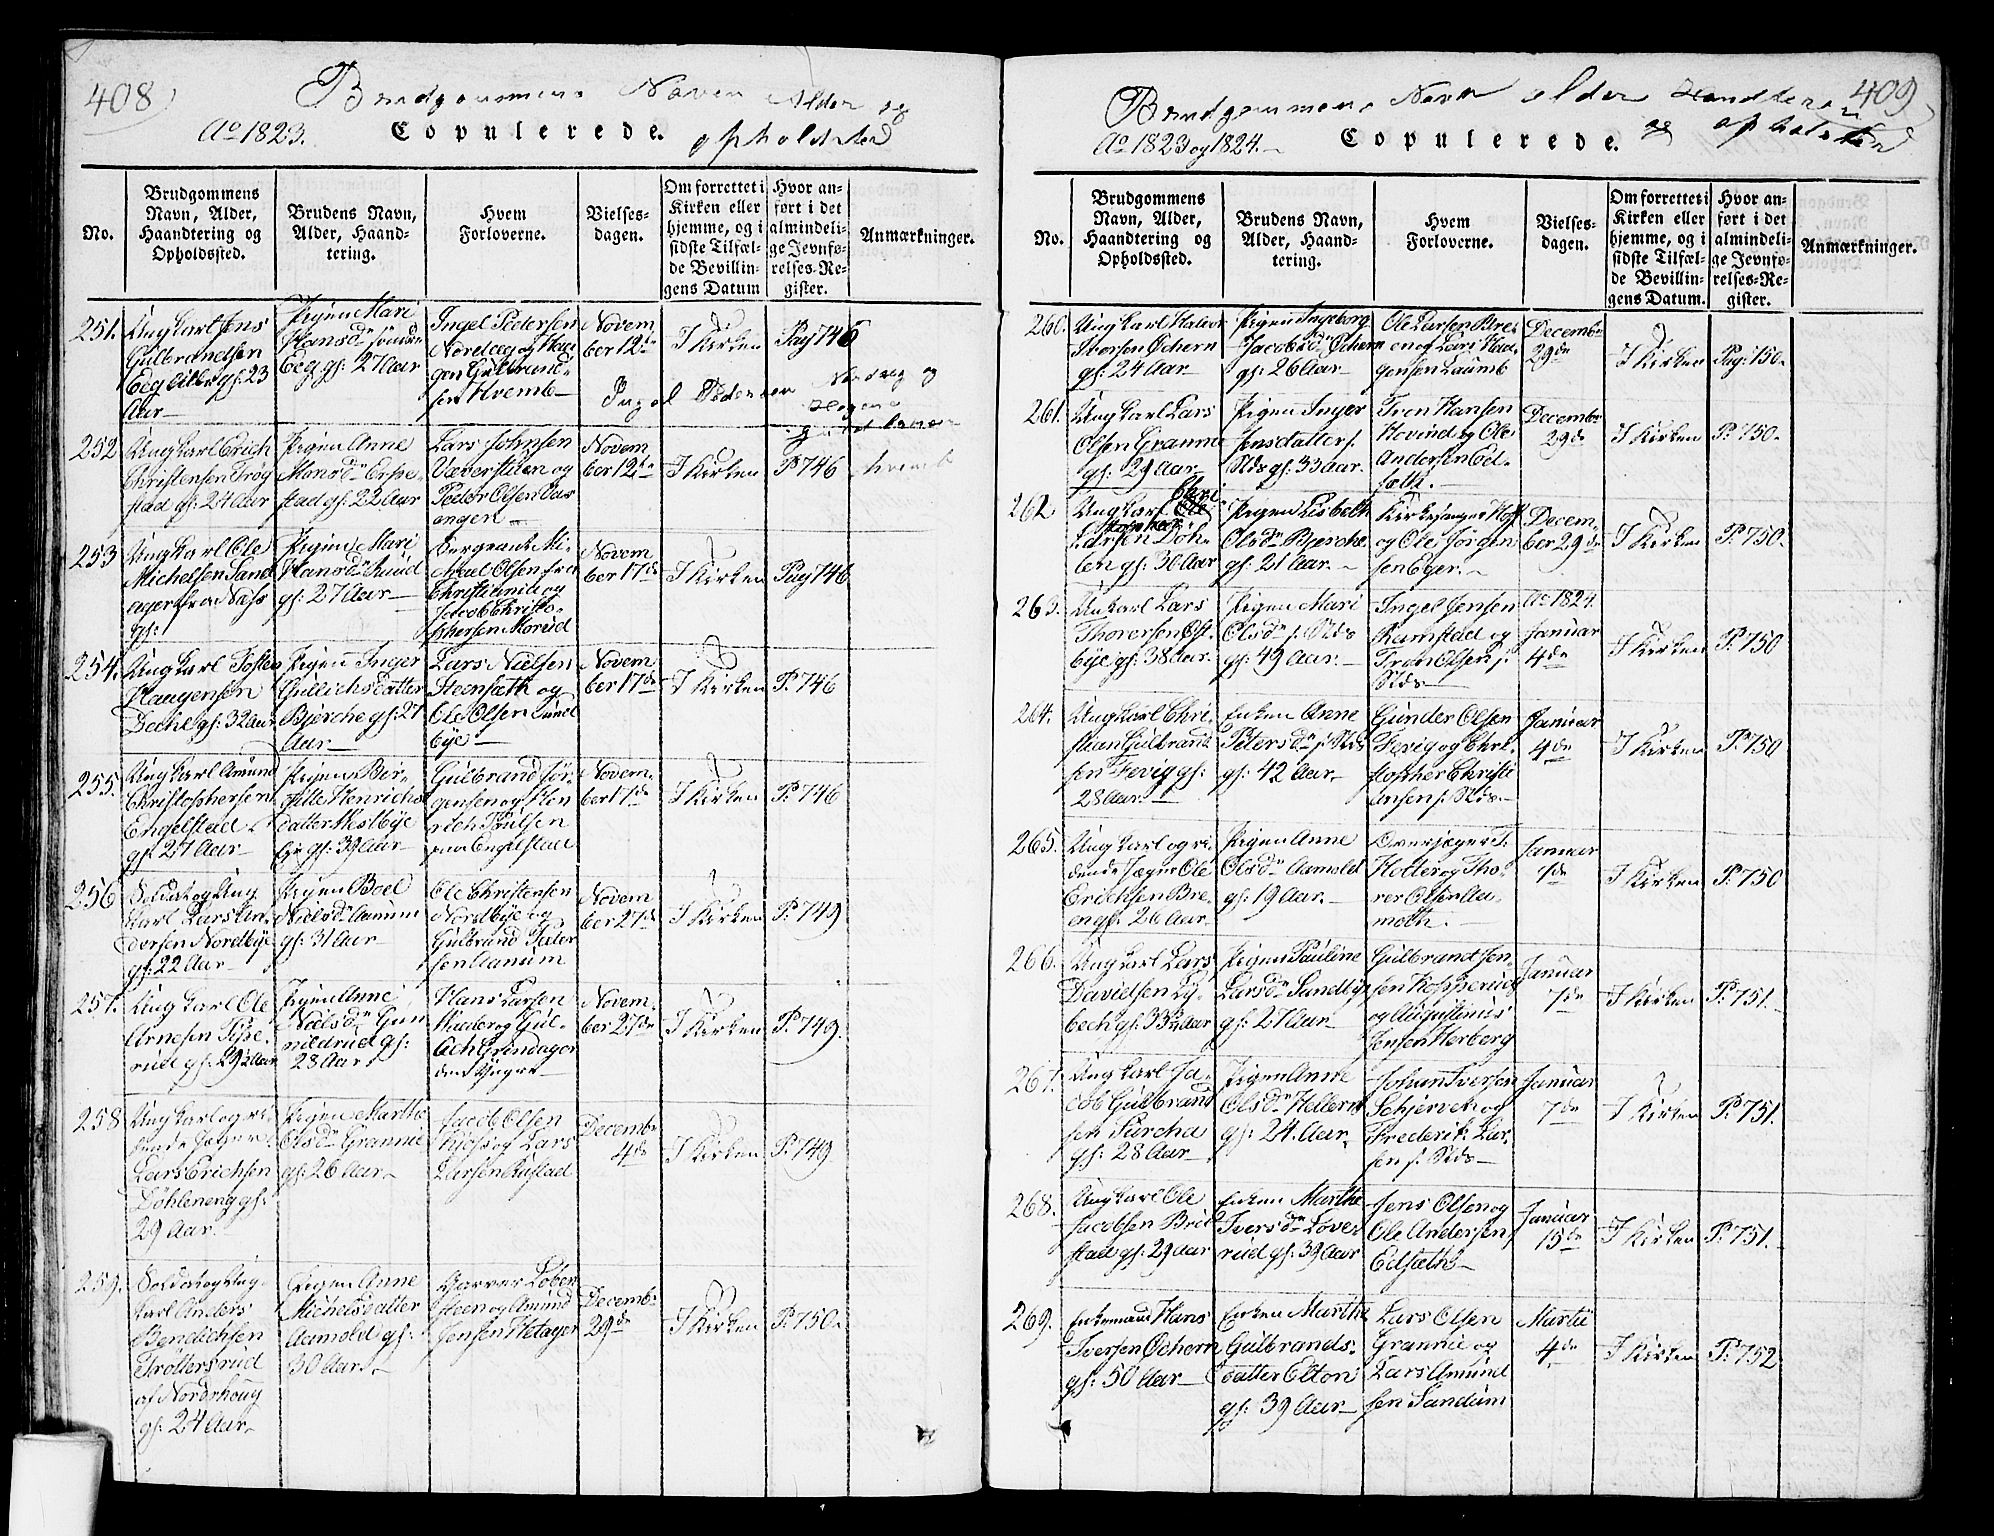 408
Brudgommens Navn Alder og
Ao 1823. Copulerede. opholdsted
No.
Brudgommens Navn, Alder, Haandtering og Opholdssted.
Brudens Navn, Alder, Haandtering.
Hvem Forloverne.
Vielsesdagen.
Om forrettet i Kirken eller hjemme, og i sidste Tilfælde Bevillingens Datum
Hvor anført i det almindelige Jevnførelses-Register.
Anmærkninger.
251.
Ungkarl Jens
Gulbrandsen
Eeg
gl: 23
Aar
Pigen Mari
Hansdr
Eeg gl: 27 Aar
Ingel Pedersen
Nordeeg og Haa
gen Gulbrand-
sen Hvemb
Novem
ber 12te
I Kirken
Pag 746
Ingel Pedersen Nordeeg og
Hagen
Gulbransen
Hvemb
252
Ungkarl Erich
Christensen Trøg
stad gl: 24 Aar
Pigen Anne
Hansdr Espe
stad gl: 22 Aar
Lars Johnsen
Væverstuen og
Peder Olsen Var
angen
Novem
ber 12te
I Kirken
P. 746
253
Ungkarl Ole
Michelsen Sand
ager fra Næss
gl:
Pigen Mari
Hansdr Ruud
gl: 27 Aar
Sergeant Mi-
chael Olsen fra
Christiania og
Jacob Christo-
phersen Morud
Novem
ber 17de
I Kirken
Pag 746
254.
Ungkarl Tosten
Haugensen
Dæhl gl: 32 Aar
Pigen Inger
Gullichsdatter
Bjerche gl: 27
Aar
Lars Nielsen
Steensæth og
Ole Olsen Sund
bye
Novem
ber 17de
I Kirken
P. 746
255.
Ungkarl Amund
Christophersen
Engelstad
gl: 27 Aar
Pigen Bir-
gitte Henrichs
datter Hestbye
gl: 39 Aar
Gulbrand Jør-
gensen og Hen
rich Poulsen
paa Engelstad
Novem-
ber 17de
I Kirken
P. 746
256
Soldat og Ung
karl Lars An-
dersen Nordbye
gl: 22 Aar
Pigen Boel
Nielsdr Aanum
gl: 31 Aar
Ole Christensen
Nordbye og
Gulbrand Peter
sen Aanum
Novem
ber 27de
I Kirken
P. 749
257.
Ungkarl Ole
Arnesen Tisse-
rud gl: 29½ Aar
Pigen Anne
Nielsdr Gun
nildrud gl:
28 Aar
Hans Larsen
Huser og Gul-
ach Grindager
den Yngre
Novem-
ber 27de
I Kirken
P. 749.
258
Ungkarl og ri-
dende Jæger
Lars Erichsen
Døhleneng gl:
29 Aar.
Pigen Marthe
Olsdr Grannie
gl: 26 Aar
Jacob Olsen
og Lars
Larsen Rustad
Decembr
4de
I Kirken
P. 749
259.
Soldat og Ung-
karl Anders
Bendichsen
Trottersrud
af Nordrhoug
gl: 24 Aar
Pigen Anne
Michelsdatter
Aamold gl:
30 Aar.
Garver Løben
steen og Amund
Jensen Hetager
Decembr
29de
I Kirken
P. 750.
409
Brudgommens Navn Alder Handtering
og opholdsted
Ao 1823 og 1824. Copulerede.
No.
Brudgommens Navn, Alder, Haandtering og Opholdssted.
Brudens Navn, Alder, Haandtering.
Hvem Forloverne.
Vielsesdagen.
Om forrettet i Kirken eller hjemme, og i sidste Tilfælde Bevillingens Datum.
Hvor anført i det almindelige Jevnførelses-Register.
Anmærkninger.
260.
Ungkarl Halvor
Iversen Ochern
gl: 24 Aar
Pigen Ingeborg
Jacobsdr Ochern
gl: 26 Aar
Ole Larsen Bre-
en og Lars Haa-
gensen Laumb
Decembr
29de
I Kirken
Pag: 750.
261.
Ungkarl Lars
Olsen Grannie
gl: 29 Aar
Pigen Inger
Jensdatter s.
Stds gl: 33 Aar.
Iven Hansen
Hovind og Ole
Andersen Ed-
sæth.
Decembr
29de
I Kirken
P. 750.
262
Ungkarl Ole Chri
stopher
Larsen Døh-
len gl: 30 Aar
Pigen Lisbeth
Olsdr Bjerche
gl: 21 Aar.
Kirkesanger Hoff
og Ole Jørgen
sen Eger.
Decem-
ber 29de
I Kirken
P. 750.
263.
Unkarl Lars
Thoresen Øst-
bye gl: 38 Aar.
Pigen Mari
Olsdr s. Stds
gl: 49 Aar.
Ingel Jensen
Ramstad og
Iver Olsen s.
Stds
Ao 1824.
Januar
4de
I Kirken
P. 750
264.
Ungkarl Chri-
stian Gulbrand
sen Fevig gl:
28 Aar.
Enken Anne
Petersdr s. Stds
gl: 42 Aar
Gunder Olsen
Fevig og Chri-
stopher Christi
ansen s. Stds.
Januar
4de
I Kirken
P. 750
265.
Ungkarl og ri-
dende Jæger Ole
Erichsen Bre-
en gl: 26 Aar
Pigen Anne
Olsdr Aamold
gl: 19 Aar.
Overjæger T.
Holter og Tho-
rer Olsen Aa-
moth.
Januar
7de
I Kirken
P. 750
266.
Ungkarl Lars
Davidsen Ly-
bech gl: 33¾ Aar
Pigen Pauline
Larsdr Sundbye
gl: 27 Aar.
Gulbrand Jen-
sen Kopperud
og Augustinus
Jensen Herberg
Januar
7de
I Kirken
P. 751.
267.
Ungkarl Ja-
cob Gulbrand
sen Furcha
gl: 28 Aar
Pigen Anne
Olsdr Hellern
gl: 24 Aar.
Johan Iversen
Schjerven og
Frederik Lar-
sen s. Stds
Januar
7de
I Kirken
P. 751.
268.
Ungkarl Ole
Jacobsen Bril
stad gl: 29 Aar
Enken Marthe
Iversdr Lover
rud gl: 39 Aar
Jens Olsen og
Ole Andersen
Edsæth
Januar
15de
I Kirken
P. 751.
269.
Enkemand Hans
Iversen Ochern
gl: 50 Aar
Enken Marthe
Gulbrands-
datter Elton
gl: 39 Aar
Lars Olsen
Grannie og
Lars Amund
sen Sandum
Martii
4de
I Kirken
P. 752